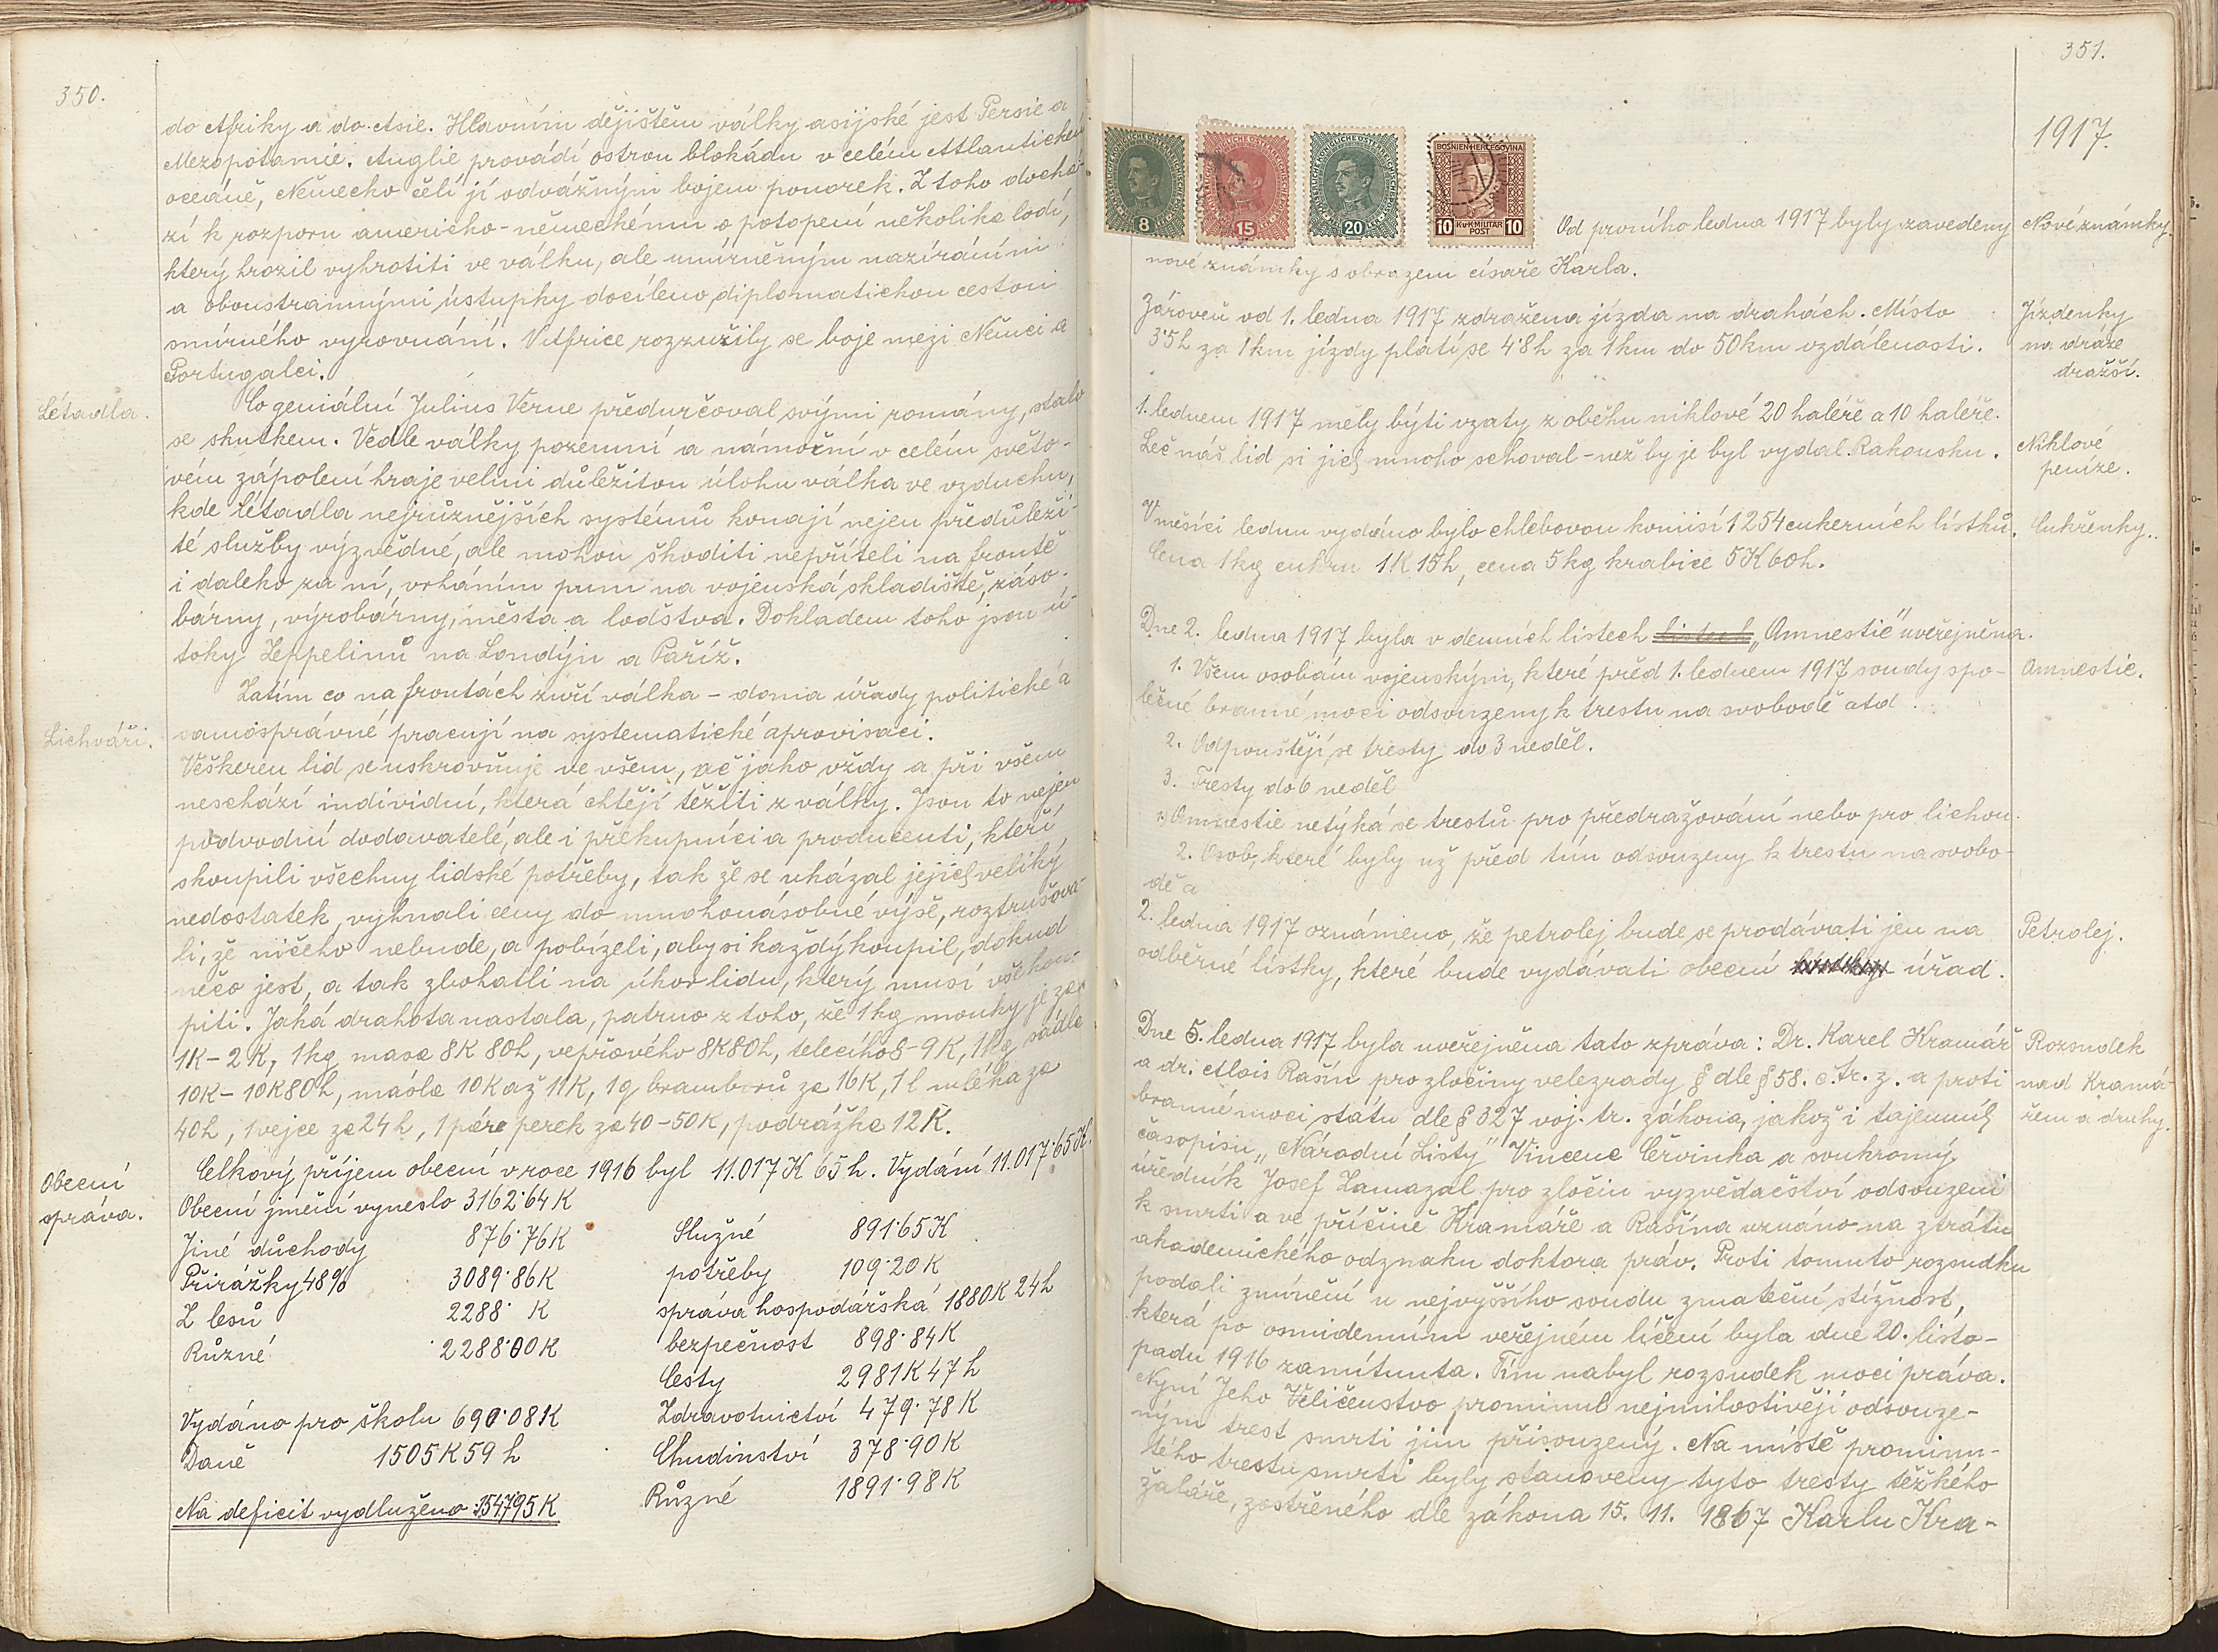 350.
do Afriky a do Asie. Hlavním dějištěm války asijské jest Persie a
Mezopotamie. Anglie provádí ostrou blokádu v celém Atlantickém
oceáně, Německo čelí jí odvážným bojem ponorek. Z toho dochá-
zí k rozporu americko-německému o potopení několika lodí,
který hrozil vyhrotiti ve válku, ale umírněným nazíráním
a oboustrannými ústupky docíleno diplomatickou cestou
smírného vyrovnání. V Africe rozzuřily se boje mezi Němci a
Portugalci.
Létadla.
Co geniální Julius Verne předurčoval svými romány, stalo
se skutkem. Vedle války pozemní a námořní v celém světo-
vém zápolení hraje velmi důležitou úlohu válka ve vzduchu,
kde létadla nejrůznějších systémů konají nejen předůleži-
té služby výzvědné, ale mohou škoditi nepříteli na frontě
i daleko za ní, vrháním pum na vojenská skladiště, záso-
bárny, výrobárny, města a loďstva. Dokladem toho jsou ú-
toky Zeppelinů na Londýn a Paříž.
Zatím co na frontách zuří válka - doma úřady politické a
Lichváři.
samosprávné pracují na systematické aprovisaci.
Veškeren lid se uskrovňuje ve všem, ač jako vždy a při všem
neschází individuí, která chtějí těžiti z války. Jsou to nejen
podvodní dodavatelé, ale i překupníci a producenti, kteří
skoupili všechny lidské potřeby, tak že se ukázal jejich veliký
nedostatek, vyhnali ceny do mnohonásobné výše, roztrušova-
li, že ničeho nebude, a pobízeli, aby si každý koupil, dokud
něco jest, a tak zbohatli na úkor lidu, který musí vše kou-
piti. Jaká drahota nastala, patrno z toho, že 1kg mouky je za
1K - 2K, 1kg masa 8K 80h, vepřového 8K80h, telecího 8-9K, 1kg sádla
10K - 10K80h, másla 10K až 11K, 1q bramborů za 16K, 1 l mléka za
40h, 1 vejce za 24h, 1 pára perek za 40-50K, podrážka 12K.
Obecní
správa.
Celkový příjem obecní v roce 1916 byl 11.017K 65h. Vydání 11.017·65K.
Obecní jmění vyneslo 3162·64K
Jiné důchody 876·76K Služné 891·65K
Přirážky 48% 3089·86K potřeby 109·20K
Z lesů 2288· K správa hospodářská 1880K 24h
Různé 2288·00K bezpečnost 898·84K
Cesty 2981K 47h
Vydáno pro školu 690·08K Zdravotnictví 479·78K
Daně 1505K 59h Chudinství 378·90K
Na deficit vydluženo 1547·95K Různé 1891·98K
351.
1917.
8
15
20
BOSNIEN-HERCEGOVINA
10 K.u.K. MILITÄR POST 10
Od prvního ledna 1917 byly zavedeny
Nové známky
nové známky s obrazem císaře Karla.
Zároveň od 1. ledna 1917 zdražena jízda na drahách. Místo
3·5h za 1km jízdy platí se 4·8h za 1km do 50km vzdálenosti.
Jízdenky
na dráze
dražší.
1. lednem 1917 měly býti vzaty z oběhu niklové 20 haléře a 10 haléře.
Leč náš lid si jich mnoho schoval - než by je byl vydal Rakousku.
Niklové
peníze.
V měsíci lednu vydáno bylo chlebovou komisí 1254 cukerních lístků.
Cukřenky.
Cena 1kg cukru 1K 15h, cena 5kg krabice 5K 60h.
Dne 2. ledna 1917 byla v denních listech listech „Amnestie" uveřejněna.
1. Všem osobám vojenským, které před 1. lednem 1917 soudy spo-
Amnestie.
lečné branné moci odsouzeny k trestu na svobodě atd.
2. Odpouštějí se tresty do 3 neděl.
3. Tresty do 6 neděl
Amnestie netýká se trestů pro předražování nebo pro lichvu.
2. Osob, které byly už před tím odsouzeny k trestu na svobo-
dě a
2. ledna 1917 oznámeno, že petrolej bude se prodávati jen na
Petrolej.
odběrné lístky, které bude vydávati obecní úřad.
Dne 5. ledna 1917 byla uveřejněna tato zpráva: Dr. Karel Kramář
Rozsudek
a dr. Alois Rašín pro zločiny velezrady § dle § 58. c. tr. z. a proti
nad Kramá-
branné moci státu dle § 327 voj. tr. zákona, jakož i tajemník
řem a druhy.
časopisu „Národní Listy" Vincenc Červinka a soukromý
úředník Josef Zamazal pro zločin vyzvědačství odsouzeni
k smrti a ve příčině Kramáře a Rašína uznáno na ztrátu
akademického odznaku doktora práv. Proti tomuto rozsudku
podali zmínění u nejvyššího soudu zmateční stížnost,
která po osmidenním veřejném líčení byla dne 20. listo-
padu 1916 zamítnuta. Tím nabyl rozsudek moci práva.
Nyní Jeho Veličenstvo prominul nejmilostivěji odsouze-
ným trest smrti jim přisouzený. Na místě prominu-
tého trestu smrti byly stanoveny tyto tresty těžkého
žaláře, zostřeného dle zákona 15. 11. 1867 Karlu Kra-